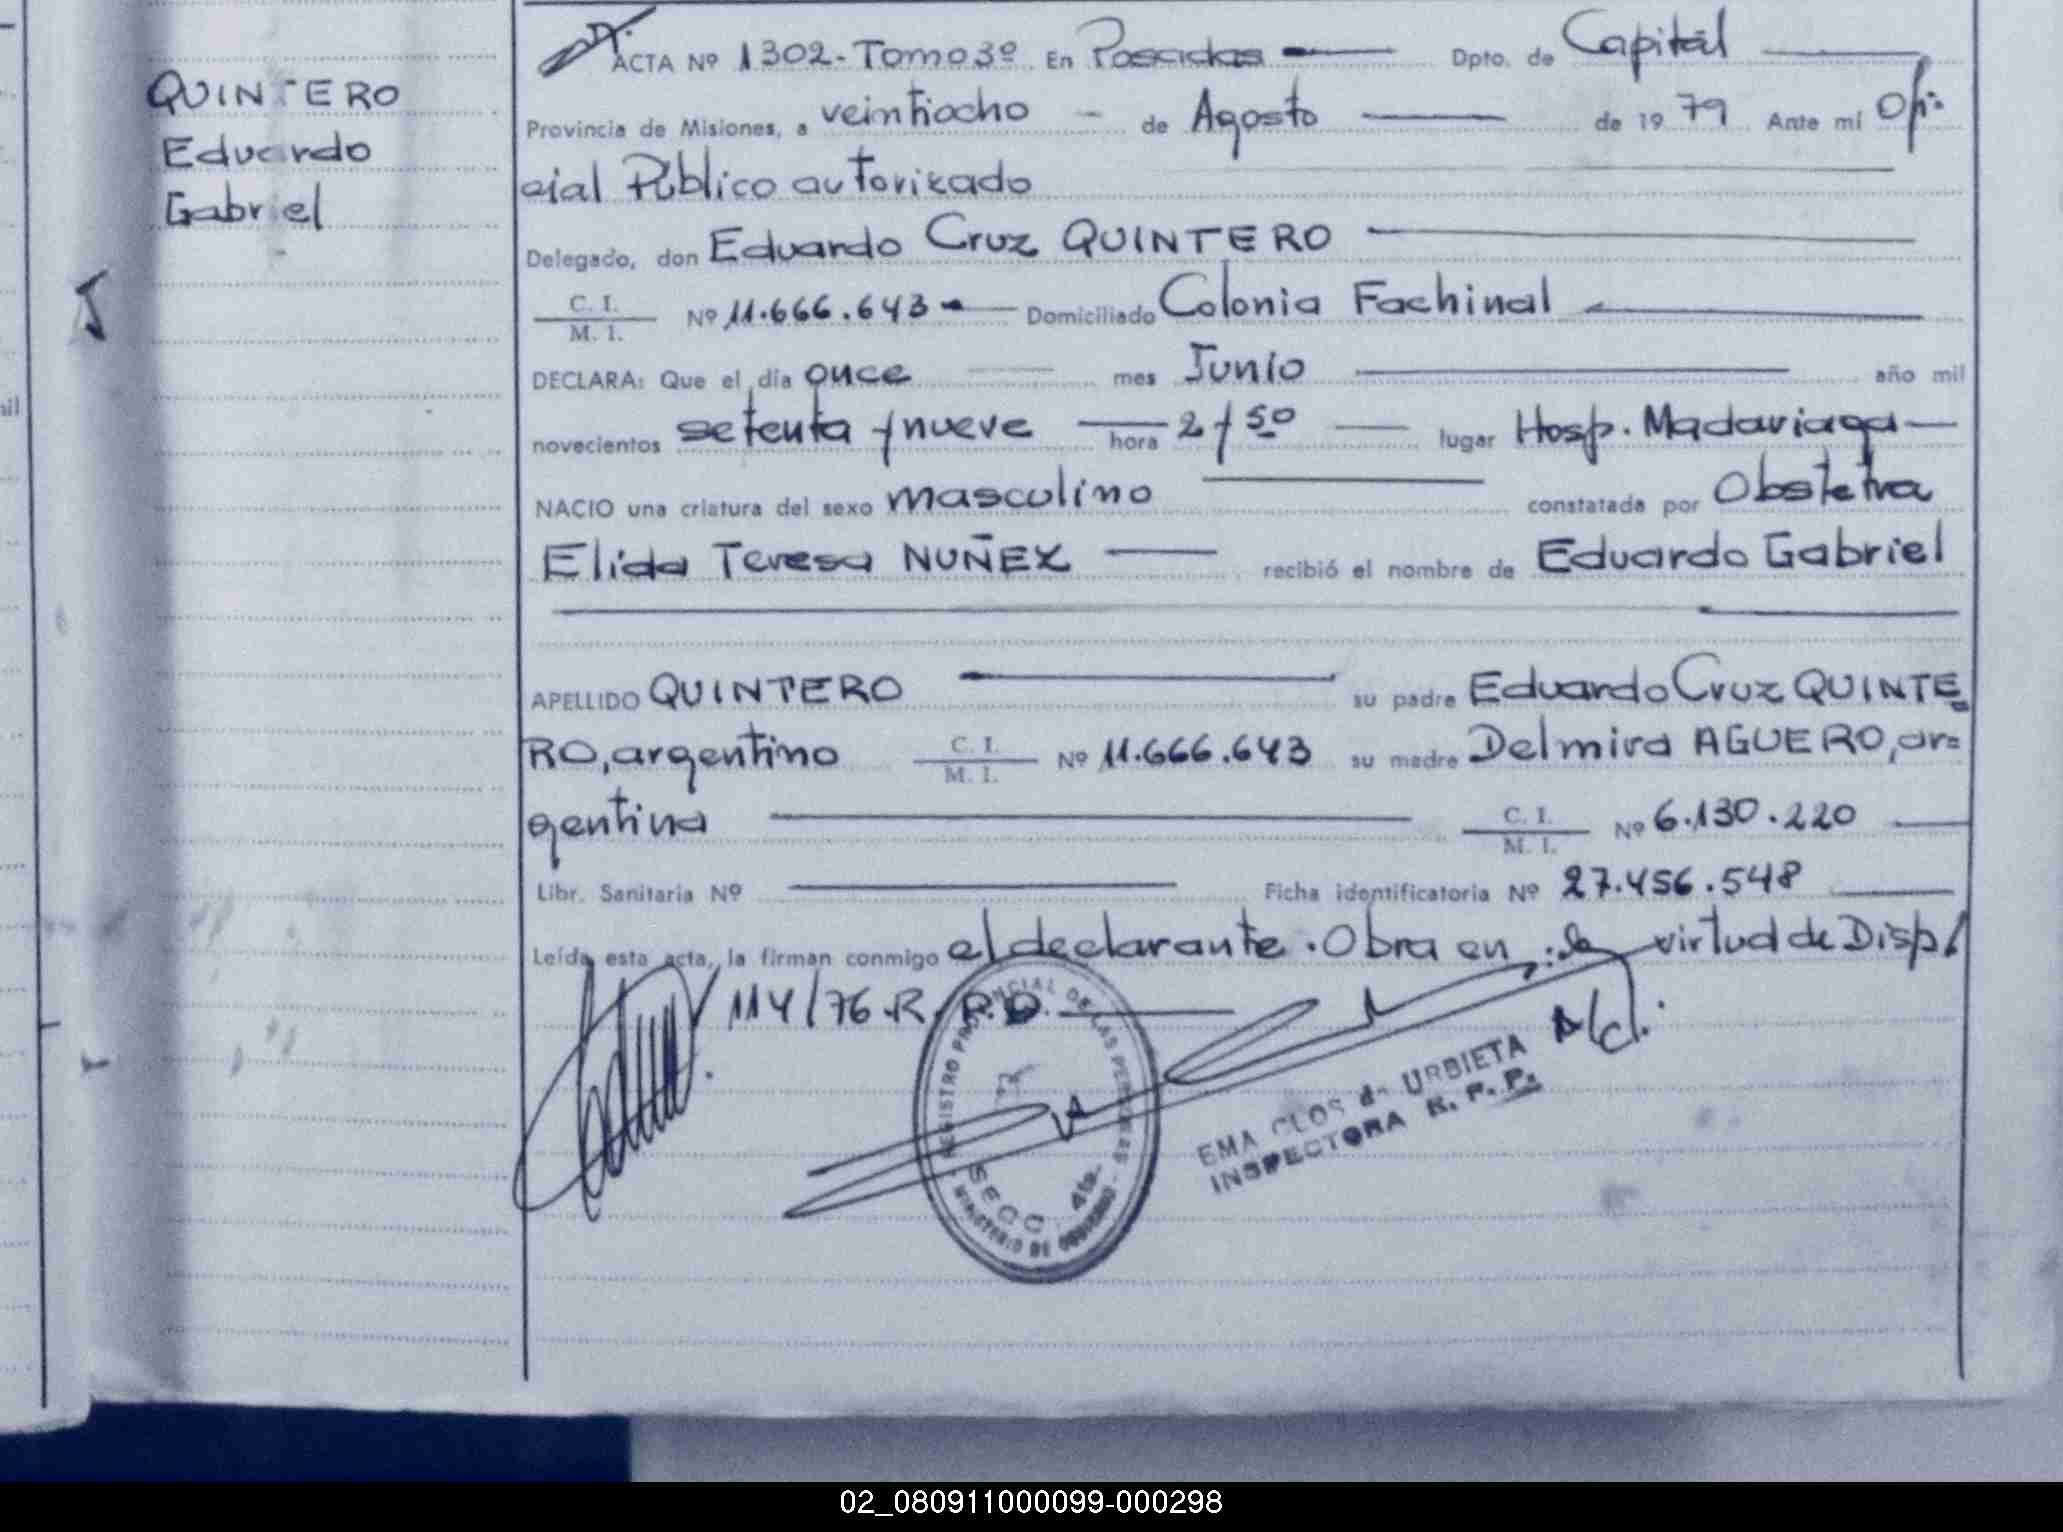 QUINTERO
Eduardo
Gabriel
ACTA Nº 1302-Tomo 3º En Posadas Dpto. de Capital
Provincia de Misiones, a veintiocho de Agosto de 1979 Ante mi Ofi=
cial Público autorizado
Delegado, don Eduardo Cruz QUINTERO
C. I.
M. I. Nº 11.666.643 Domiciliado Colonia Fachinal
DECLARA: Que el día once mes Junio año mil
novecientos setenta y nueve hora 21 50 lugar Hosp. Madariaga
NACIO una criatura del sexo masculino constatada por Obstetra
Elida Teresa NUÑEZ recibió el nombre de Eduardo Gabriel
APELLIDO QUINTERO su padre Eduardo Cruz QUINTE=
RO, argentino C. I. M. I. Nº 11.666.643 su madre Delmira AGUERO, ar=
gentina C. I. M. I. Nº 6.130.220
Libr. Sanitaria Nº Ficha identificatoria Nº 27.456.548
Leída esta acta, la firman conmigo el declarante. Obra en virtud de Disp/
114/76.R.P.P.
REGISTRO PROVINCIAL DE LAS PERSONAS
SECC. 4ta.
MINISTERIO DE GOBIERNO
EMA CLOS de URBIETA
INSPECTORA R. P. P.
A/cl.
02_080911000099-000298